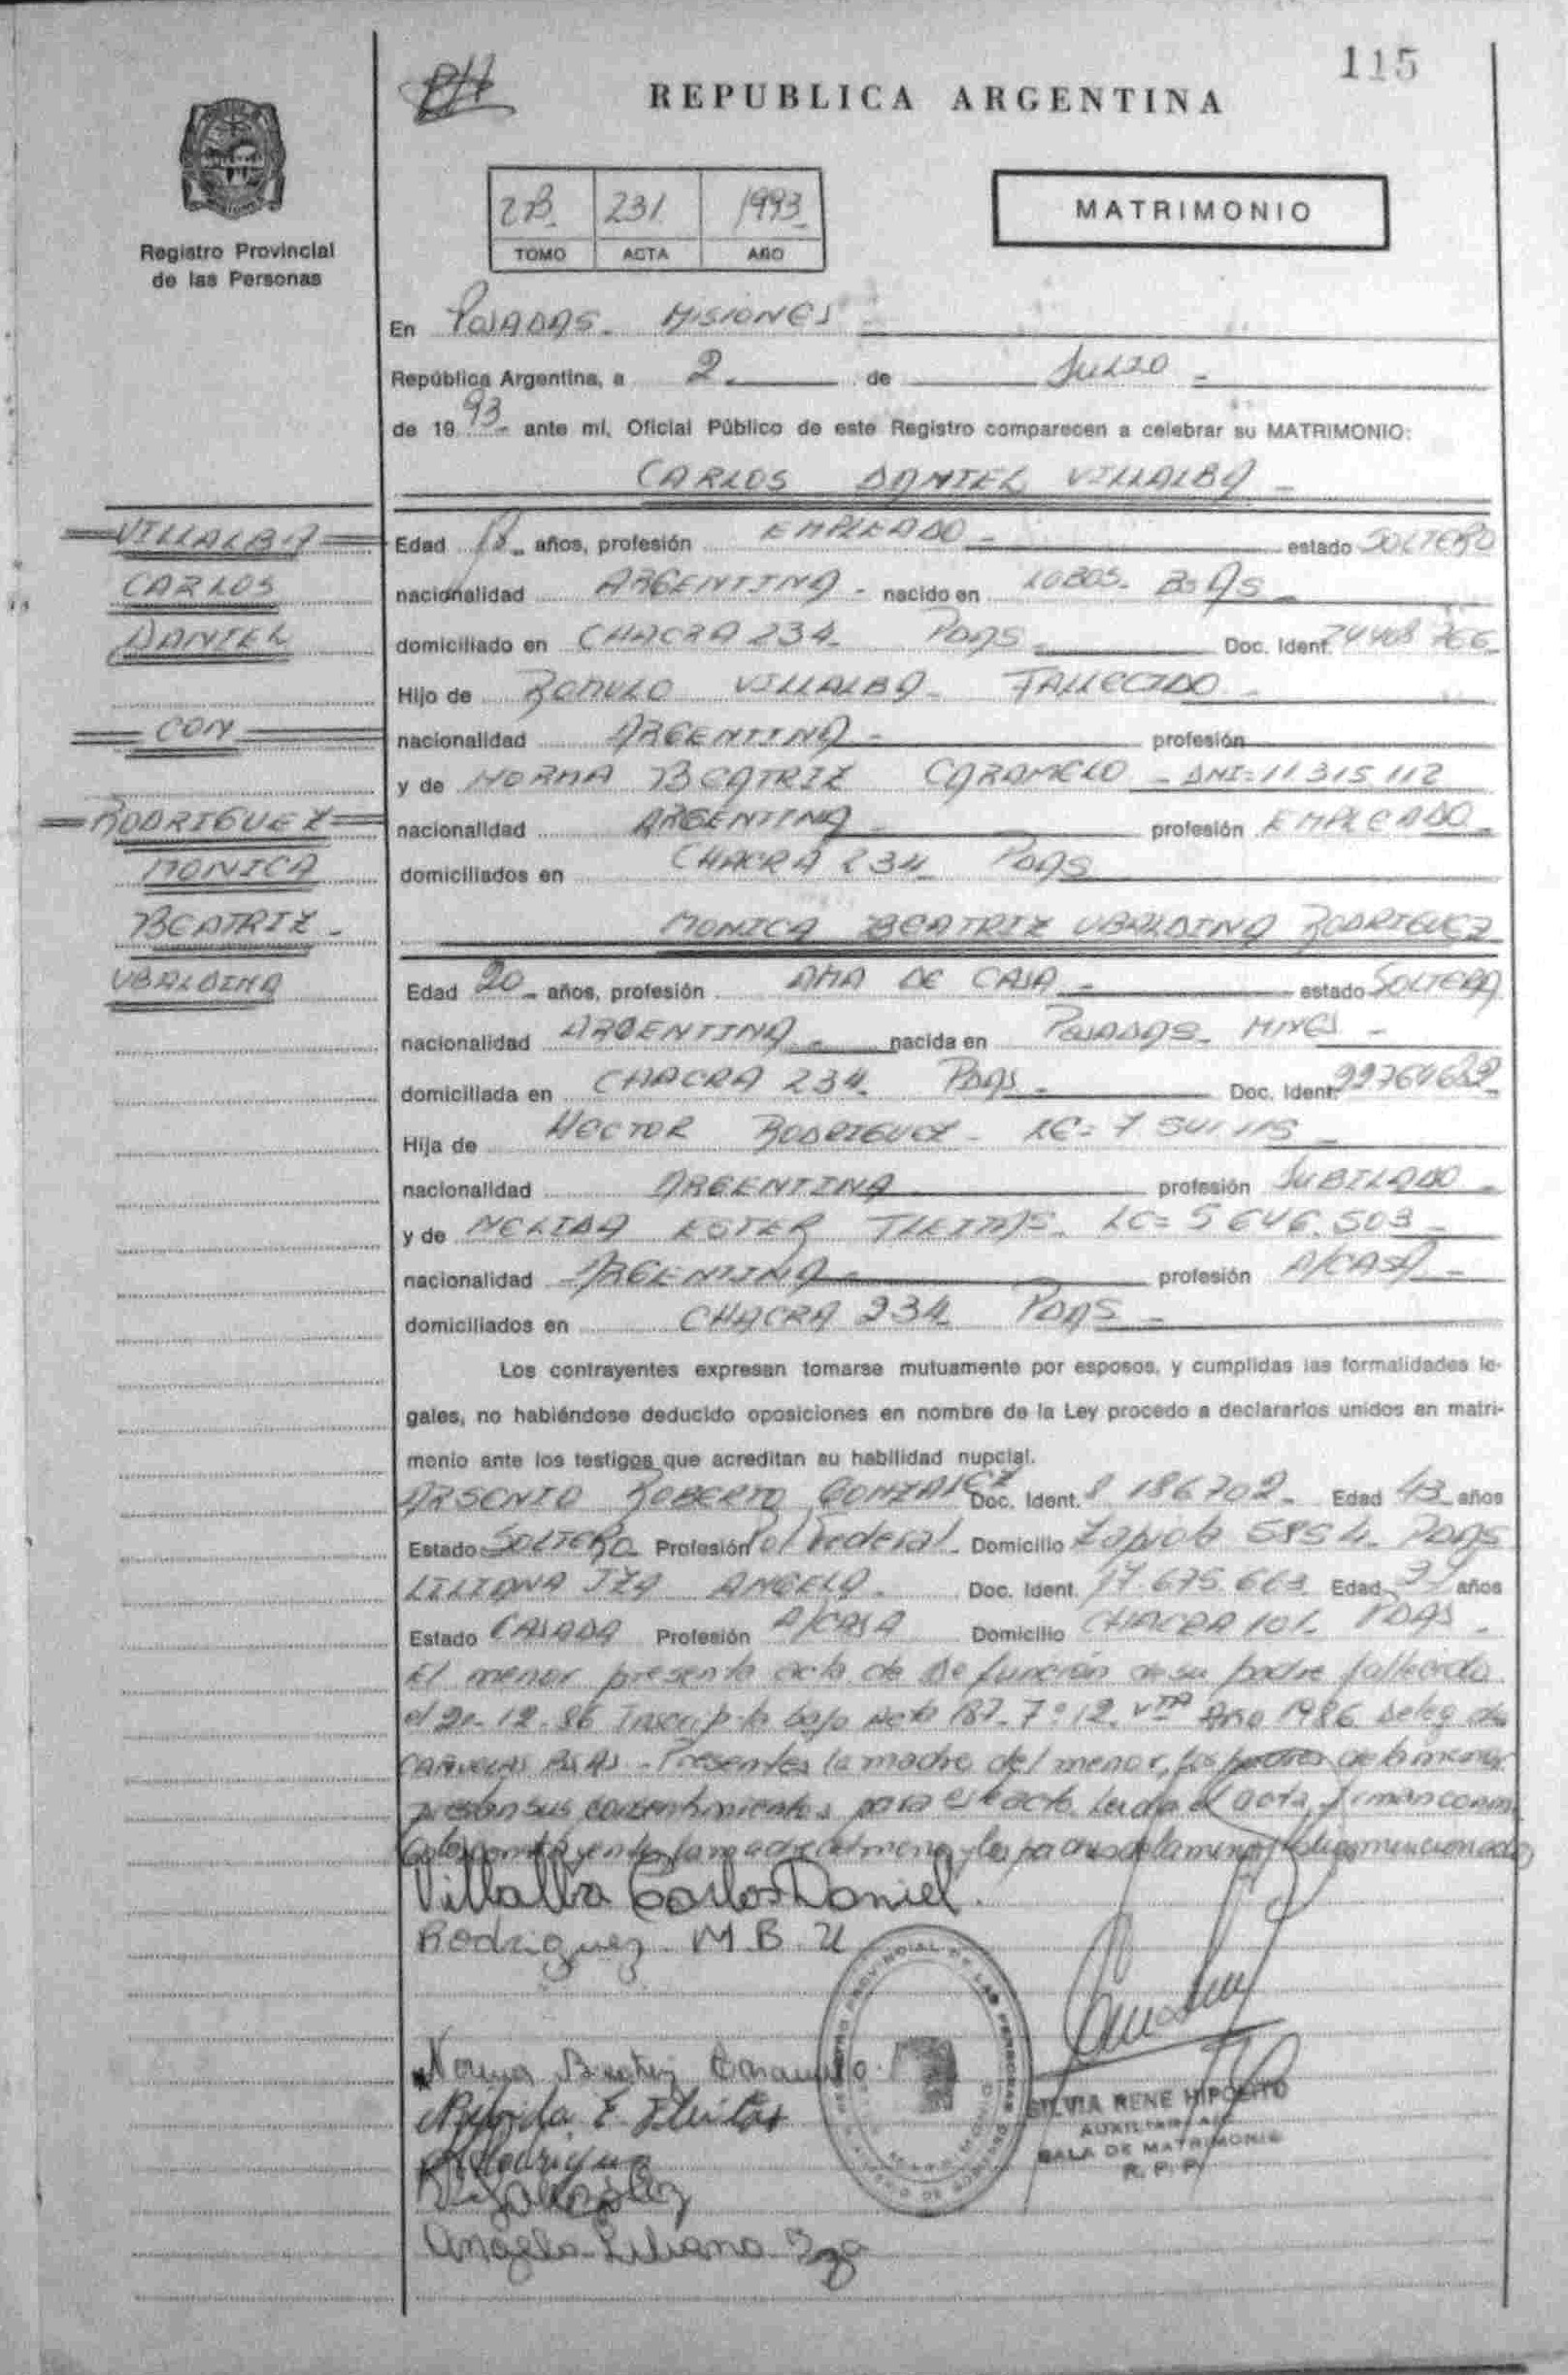 115
REPUBLICA ARGENTINA
2B 231 1993
TOMO ACTA AÑO
MATRIMONIO
Registro Provincial
de las Personas
En POSADAS - MISIONES -
República Argentina, a 2 de JULIO -
de 1993 - ante mí, Oficial Público de este Registro comparecen a celebrar su MATRIMONIO:
CARLOS DANIEL VILLALBA -
VILLALBA
CARLOS
DANIEL
CON
RODRIGUEZ
MONICA
BEATRIZ -
UBALDINA
Edad 18 años, profesión EMPLEADO - estado SOLTERO
nacionalidad ARGENTINA - nacido en LOBOS - Bs As -
domiciliado en CHACRA 234 - PDAS - Doc. Ident. 24408 766
Hijo de ROMULO VILLALBA - FALLECIDO -
nacionalidad ARGENTINA - profesión
y de NORMA BEATRIZ CARAMELO - DNI= 11.315.112
nacionalidad ARGENTINA - profesión EMPLEADO -
domiciliados en CHACRA 234 PDAS
MONICA BEATRIZ UBALDINA RODRIGUEZ
Edad 20 - años, profesión AMA DE CASA - estado SOLTERA
nacionalidad ARGENTINA - nacida en POSADAS - MNES -
domiciliada en CHACRA 234 - PDAS - Doc. Ident.
Hija de HECTOR RODRIGUEZ - LE= 7
nacionalidad ARGENTINA profesión JUBILADO -
y de NELIDA ESTER FLEITAS - LC= 5 646.503 -
nacionalidad ARGENTINA - profesión A/CASA -
domiciliados en CHACRA 234 PDAS -
Los contrayentes expresan tomarse mutuamente por esposos, y cumplidas las formalidades le-
gales, no habiéndose deducido oposiciones en nombre de la Ley procedo a declararlos unidos en matri-
monio ante los testigos que acreditan su habilidad nupcial.
ARSENIO ROBERTO GONZALEZ Doc. Ident. 8 186702 - Edad 43 años
Estado SOLTERO Profesión Pol Federal - Domicilio Zapiola PDAS
LILIANA IZA ANGELA - Doc. Ident. 17.675.663 Edad años
Estado CASADA Profesión A/CASA Domicilio CHACRA 101 - PDAS -
El menor presenta acta de Defunción de su padre fallecido
el 20-12-86 Inscripta bajo Acta 187 - Tº 12 - Año 1986 Deleg de
Bs As - Presentes la madre del menor, los padres de la menor
prestan sus consentimientos para este acto. Leida el acta firman conm
la madre del menor y los padres de la menor
Villalba Carlos Daniel.
Rodriguez M.B.U
Norma Beatriz Caramelo
Nelida E. Fleitas
Rodriguez
Angela Liliana Iza
REGISTRO PROVINCIAL DE LAS PERSONAS
SILVIA RENE HIPOLITO
AUXILIAR
SALA DE MATRIMONIO
R. P. P.